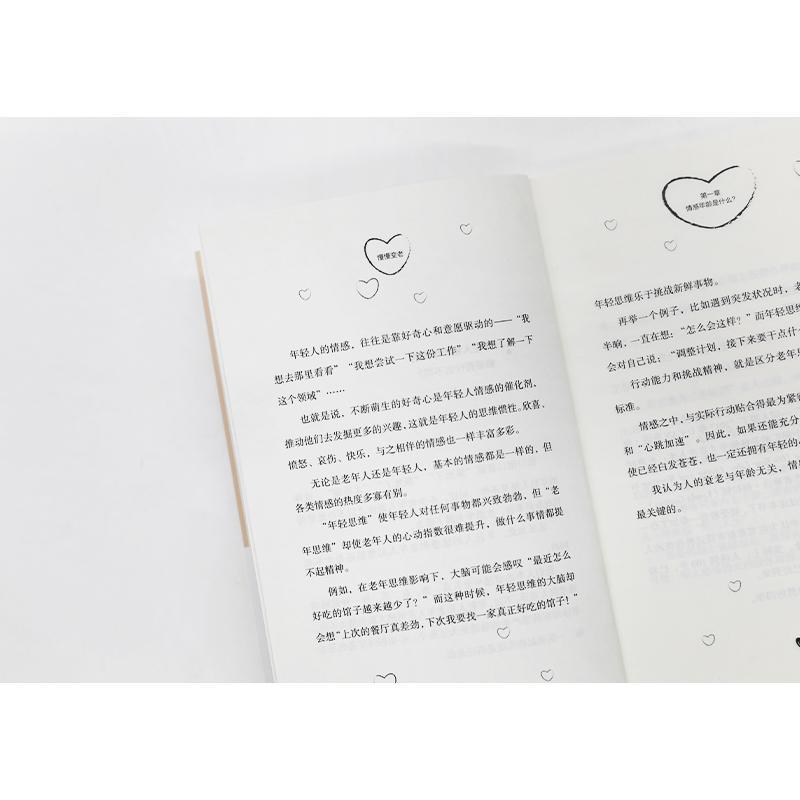 慢慢变老
年轻人的情感，往往是靠好奇心和意愿驱动的——“我
想去那里看看”“我想尝试一下这份工作”“我想了解一下
这个领域”……
也就是说，不断萌生的好奇心是年轻人情感的催化剂，
推动他们去发掘更多的兴趣，这就是年轻人的思维惯性。欣喜、
愤怒、哀伤、快乐，与之相伴的情感也一样丰富多彩。
无论是老年人还是年轻人，基本的情感都是一样的，但
各类情感的热度多寡有别。
“年轻思维”使年轻人对任何事物都兴致勃勃，但“老
年思维”却使老年人的心动指数很难提升，做什么事情都提
不起精神。
例如，在老年思维影响下，大脑可能会感叹“最近怎么
好吃的馆子越来越少了？”而这种时候，年轻思维的大脑却
会想“上次的餐厅真差劲，下次我要找一家真正好吃的馆子！”
第一章
情感年龄是什么？
年轻思维乐于挑战新鲜事物。
再举一个例子，比如遇到突发状况时，老
半晌，一直在想：“怎么会这样？”而年轻思维
会对自己说：“调整计划，接下来要干点什
行动能力和挑战精神，就是区分老年思
标准。
情感之中，与实际行动贴合得最为紧
和“心跳加速”。因此，如果还能充分
使已经白发苍苍，也一定还拥有年轻的
我认为人的衰老与年龄无关，情
最关键的。